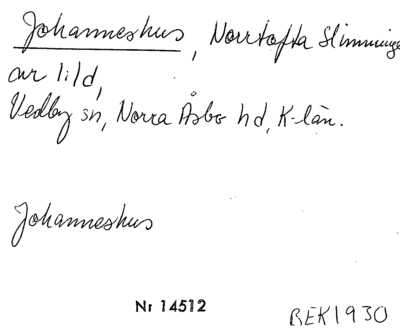 Johanneshus, Norrtofta Slimminge
avr lild,
Vedby sn, Norra Åsbo hd, K-län.
Johanneshus
Nr 14512
BEK1930